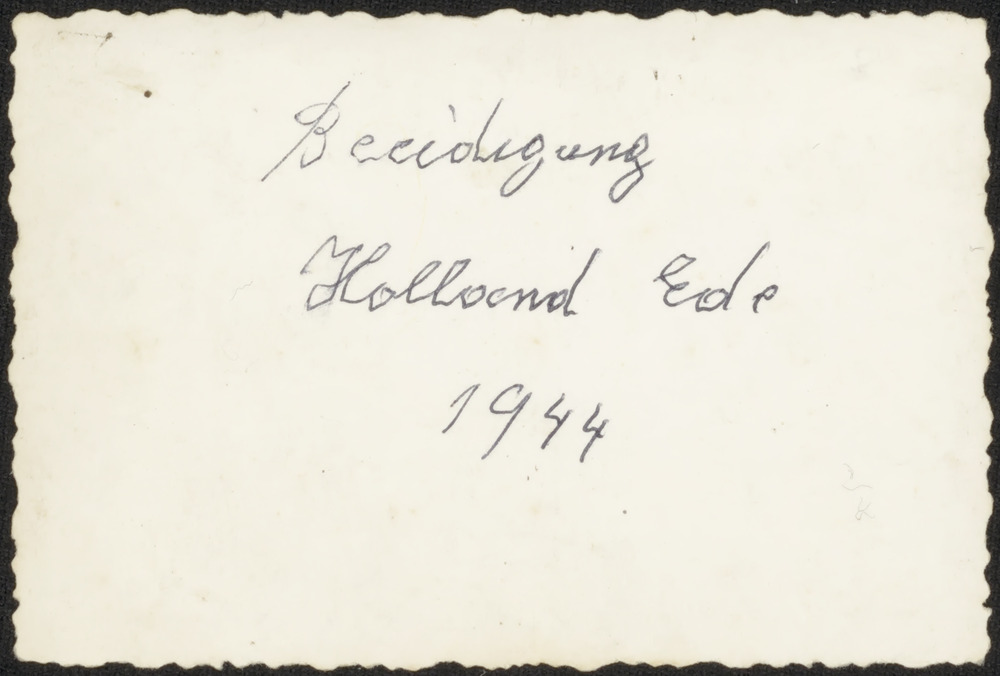 Beeidigung
Holland Ede
1944